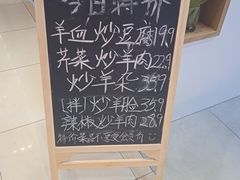 今日特价
羊血炒豆腐19.9
芹菜炒羊肉22.9
炒羊杂35.9
[拌]炒羊脸35.9
辣椒炒羊肉28.9